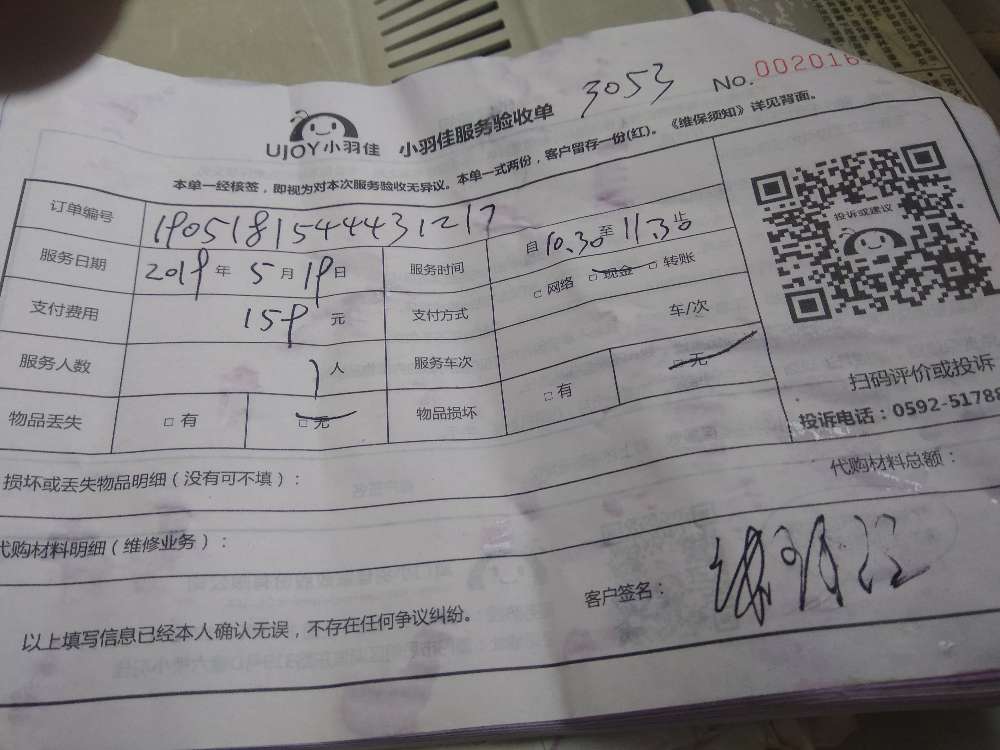 3053
No. 002016
UJOY小羽佳 小羽佳服务验收单
本单一经核签，即视为对本次服务验收无异议。本单一式两份，客户留存一份(红)。《维保须知》详见背面。
订单编号 19051815444431217
服务日期 2019年5月19日 服务时间 自10.30至11.30止
支付费用 159元 支付方式 □网络 □现金 □转账
服务人数 1人 服务车次 车/次
物品丢失 □有 □无 物品损坏 □有 □无
投诉或建议
扫码评价或投诉
投诉电话：0592-51788
损坏或丢失物品明细（没有可不填）：
代购材料总额：
代购材料明细（维修业务）：
以上填写信息已经本人确认无误，不存在任何争议纠纷。
客户签名：